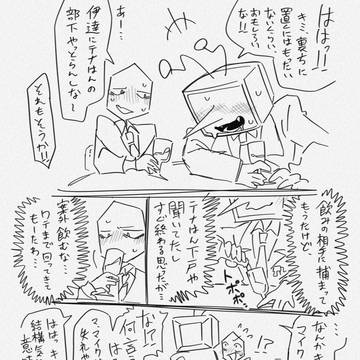 ははっ!!
キミ、裏方に
置くにはもったい
ないくらい、
おもしろい
な!!
あー…
伊達にテナはんの
部下やっとらんしな〜
それもそうか!!
飲みの相手に捕まって
もうたけど
テナはん下戸や
聞いてたし
すぐ終わる思たが…
トポポ…
案外飲むな…
ワイまで回ってき
もーたわ…
なんか
マイク
な!?
何言
は
マイク
失れや
!?
ははっキ
結構
意